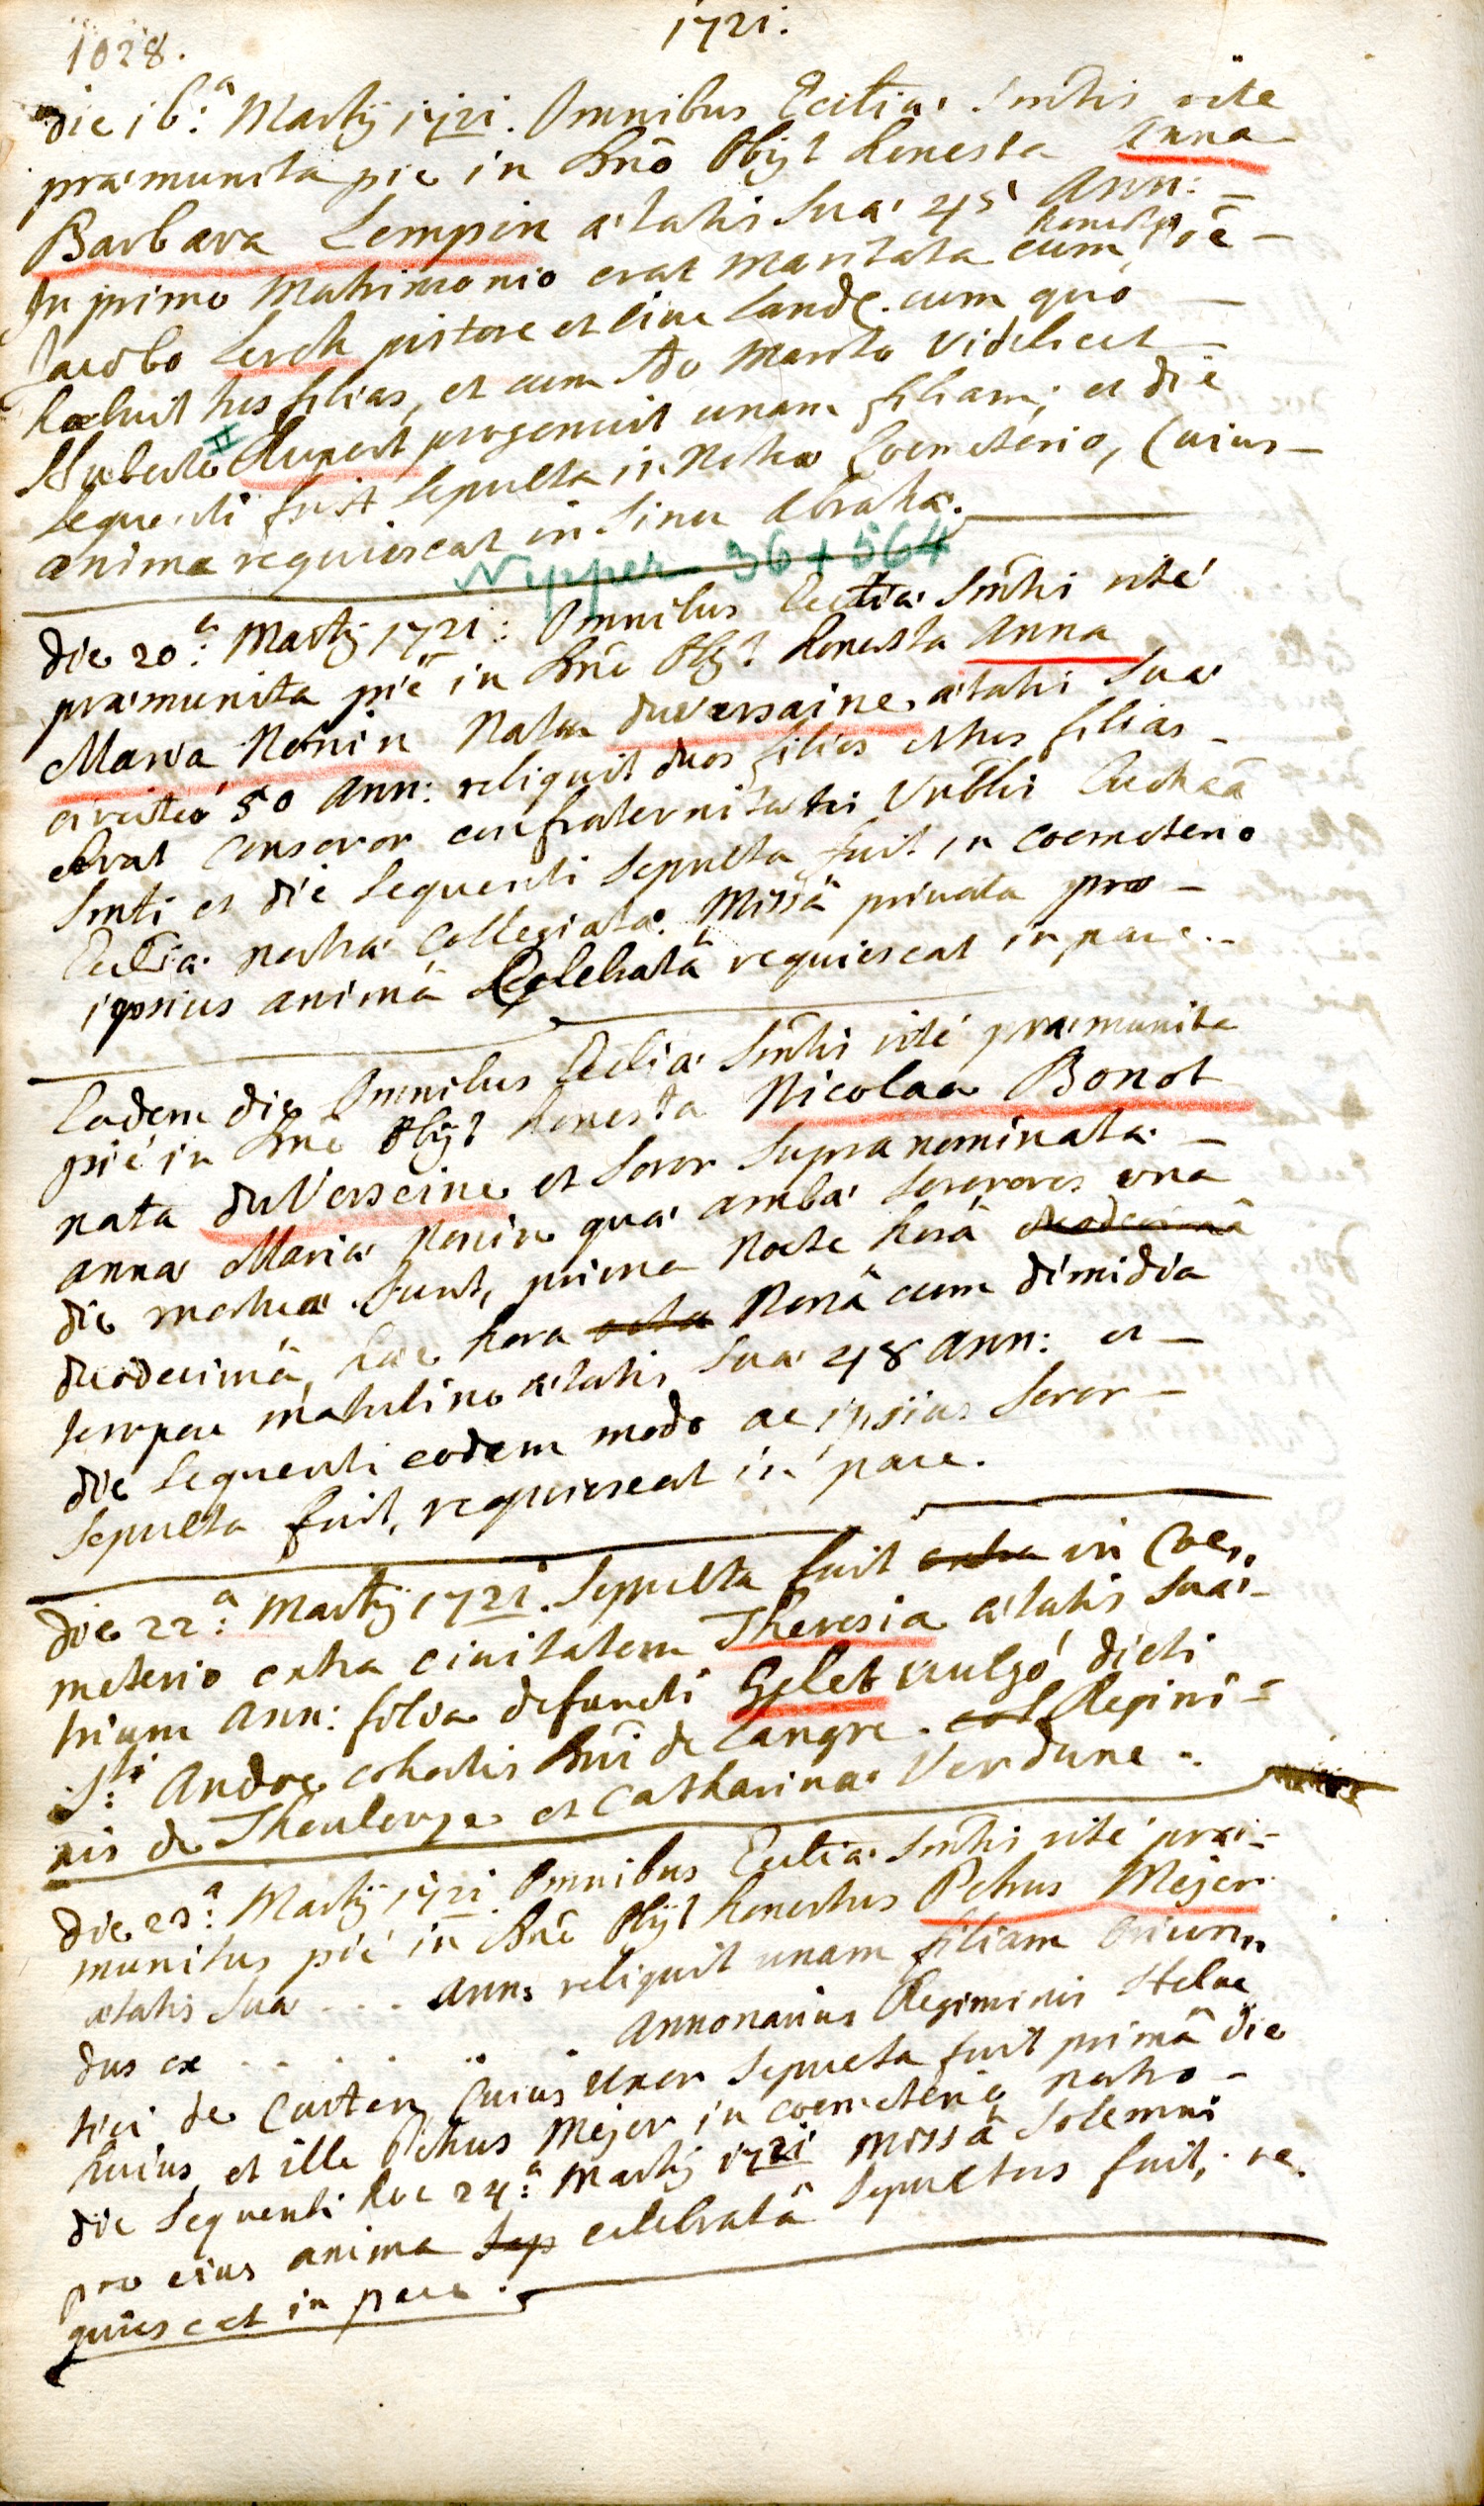 1028.
1721.
die 16.a Martij 1721. Omnibus Ecctia. Smtis rite
præmunita pie in Dnõ Obijt honesta Anna
Barbara Lempin ætatis Suæ 45 Ann: –
In primo Matrimonio erat maritata cum honesto
Jacobo Lerch pistore et cive Land. cum quo –
habuit tres filias, et cum 2do Marito videlicet –
Huberto Rupert progenuit unam filiam; et die
II
Sequenti fuit Sepulta in Nostro Coemeterio, Cuius –
anima requiescat in Sinu Abrahæ.
Nipper 36 + 564
die 20.a Martij 1721: Omnibus Ecctiæ Smtis rité
præmunita pié in Dnõ Obijt honesta Anna
Maria Nonin Nata duversaine, ætatis Suæ
circiter 50 Ann: reliquit duos filios et tres filias –
erat Consoror confraternitatis Vnblis Euchãa
Smti et die Sequenti Sepulta fuit in coemeterio
Ecctiæ nostræ Collegiatæ. Missâ privata pro –
ipsius animâ Celebratâ requiescat in pace. –
Eadem die Omnibus Ecctiæ Smtis rité præmunita
pié in Dnõ Obijt honesta Nicolaa Bonot
nata duVerseine et Soror Supra nominatæ –
Anna Maria Nonin quæ ambæ Sorores una
die mortuæ Sunt, prima Nocte horâ duodecimâ
duodecimâ, hæc hora octa Nonâ cum dimidia
tempore matutino ætatis Suæ 48 Ann: et –
die Sequenti eodem modo ac ipsius Soror –
Sepulta fuit, requiescat in pace.
die 22.a Martij 1721. Sepulta fuit extra in Coe-
meterio extra civitatem Theresia ætatis Suæ –
trium Ann: filia defuncti Gelet vulgó dicti
Sti: Andre cohortis Dnĩ de Langre. Regimi =
nis de Theulouze et Catharinæ Verdune.
die 23.a Martij 1721 Omnibus Ecctiæ Smtis rité præ –
munitus pié in Dnõ Obijt honestus Petrus Mejer
ætatis Suæ . . . . Ann: reliquit unam filiam Oriun-
dus ex . . . . . Annonarius Regiminis Helve
tici de Curten Cuius Uxor Sepulta fuit primâ die
huius, et ille Petrus Mejer in coemeterio nostro –
die Sequenti hoc 24.a Martij 1721 Missâ Solemni
pro eius anima Sep celebratâ Sepultus fuit, re-
quiescat in pace.